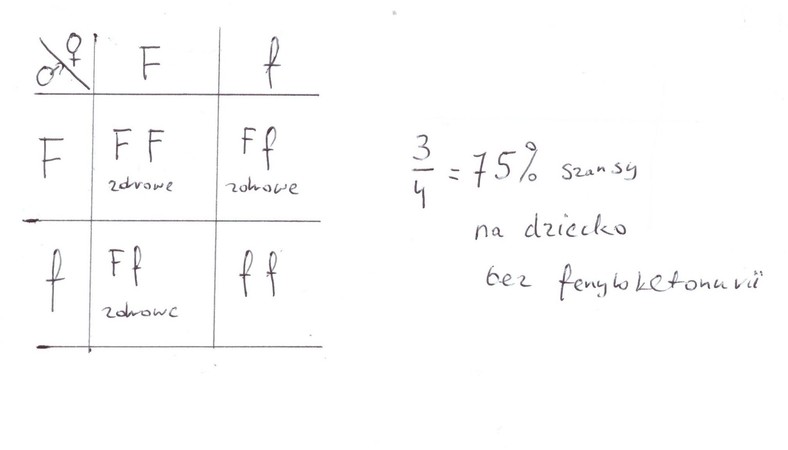 ♂ ♀ F f
F FF Ff
zdrowe zdrowe
f Ff ff
zdrowe
3/4 = 75% szansy
na dziecko
bez fenyloketonurii